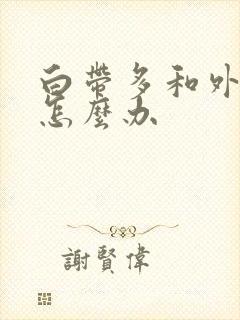 白帶多和外
怎麼办
謝賢偉